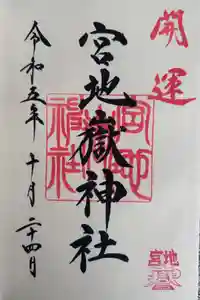 開運
宮地嶽神社
令和五年 十月 二十四日
宮地嶽神社
宮地